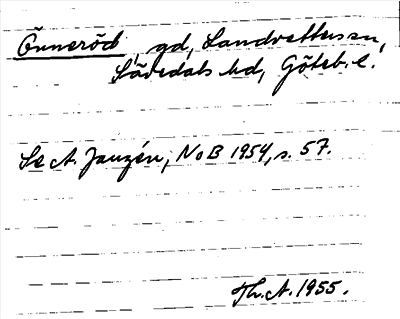 Önneröd, gd, Landvetters sn,
Sävedals hd, Göteb. l.
Se A. Janzén, NoB 1954, s. 57.
Th. A. 1955.